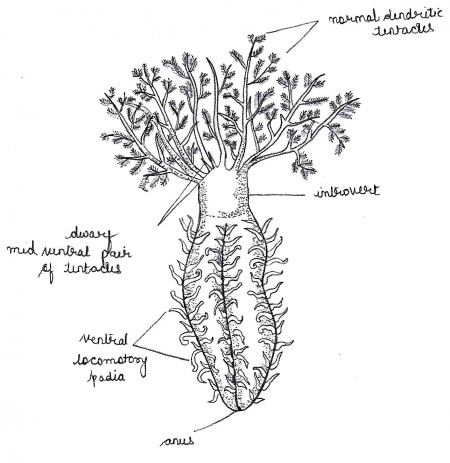 normal dendritic
tentacles
introvert
dwarf
mid ventral pair
of tentacles
ventral
locomotory
podia
anus